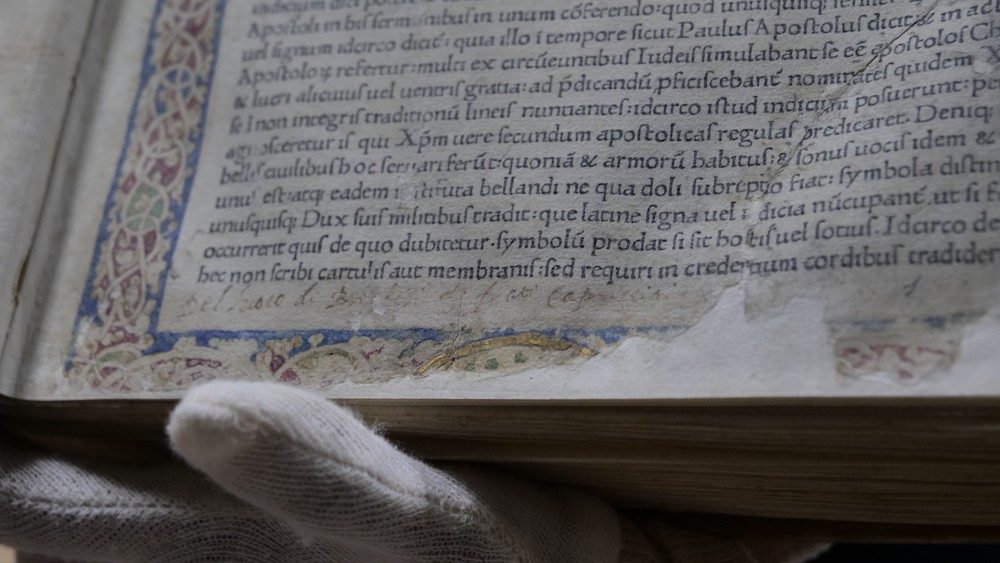 indicium dici
Apostoli in his sermonibus in unum cōferendo: quod unusquisq;
uel signum idcirco dicit: quia illo ī tempore sicut Paulus Apostolus dicit: & in ac
Apostoloꝝ refertur: multi ex circūeuntibus Iudeis simulabant se eē apostolos Ch
& lucri alicuius uel uentris gratia: ad p̄dicandū p̄ficiscebant nominātes quidem X
se l non integris traditionū lineis nuntiantes: idcirco istud indicium posuerunt: pe
agnosceretur is qui Xp̄m uere secundum apostolicas regulas predicaret. Deniq;
bellis ciuilibus hoc seruari ferūt: quoniā & armorū habitus: & sonus uocis idem &
unu' est: atq; eadem instituta bellandi ne qua doli subreptio fiat: symbola distin
unusquisq; Dux suis militibus tradit: que latine signa uel indicia nūcupant: ut si f
occurrerit quis de quo dubitetur. symbolū prodat si sit hostis uel sotius. Idcirco de
hec non scribi cartulis aut membranis: sed requiri in credentium cordibus tradider
Del di frati